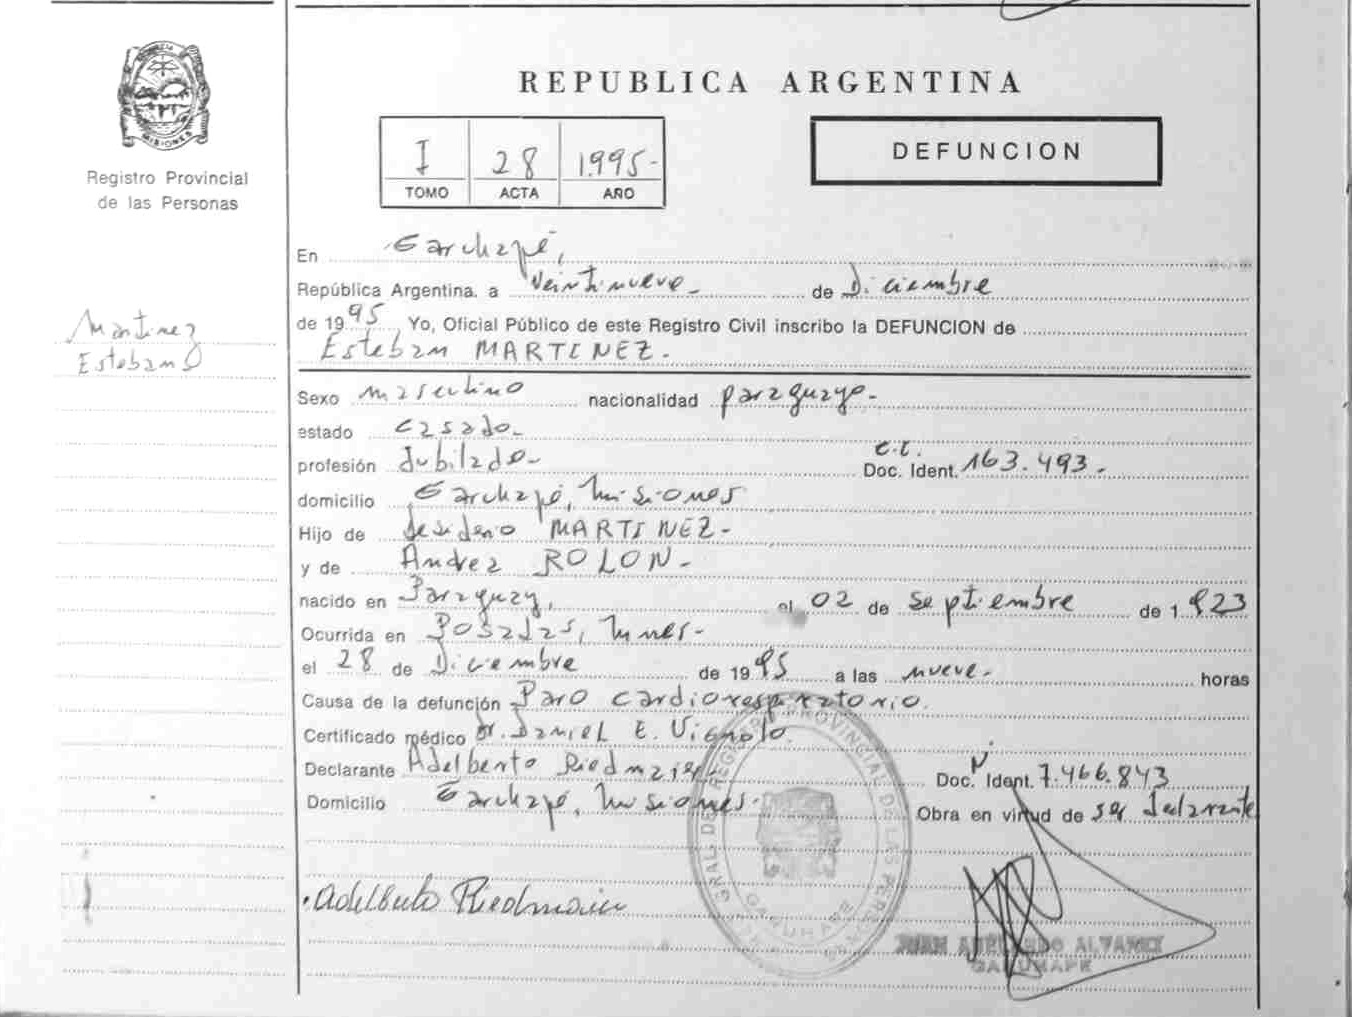 REPUBLICA ARGENTINA
MISIONES
Registro Provincial
de las Personas
I 28 1.995-
TOMO ACTA AÑO
DEFUNCION
En Garuhapé,
República Argentina, a veintinueve- de Diciembre
de 1995 Yo, Oficial Público de este Registro Civil inscribo la DEFUNCION de
Esteban MARTINEZ.
Martinez
Esteban
Sexo masculino nacionalidad paraguaya-
estado casado-
profesión Jubilado- C.I. Doc. Ident. 163.493.
domicilio Garuhapé, Misiones
Hijo de Desiderio MARTINEZ-
y de Andrea ROLON-
nacido en Paraguay, el 02 de septiembre de 1.923
Ocurrida en Posadas, Mnes-
el 28 de Diciembre de 1995 a las nueve- horas
Causa de la defunción Paro cardiorespiratorio.
Certificado médico Dr. Daniel E. Vignolo.
Declarante Adelberto Riedmaier- Doc. Ident. 7.466.843
Domicilio Garuhapé, Misiones- Obra en virtud de ser declarante
Adelberto Riedmaier
REGISTRO PROVINCIAL DE LAS PERSONAS
GARUHAPE
JUAN ALVAREZ
GARUHAPE